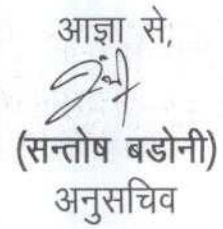 आज्ञा से,
(सन्तोष बडोनी)
अनुसचिव